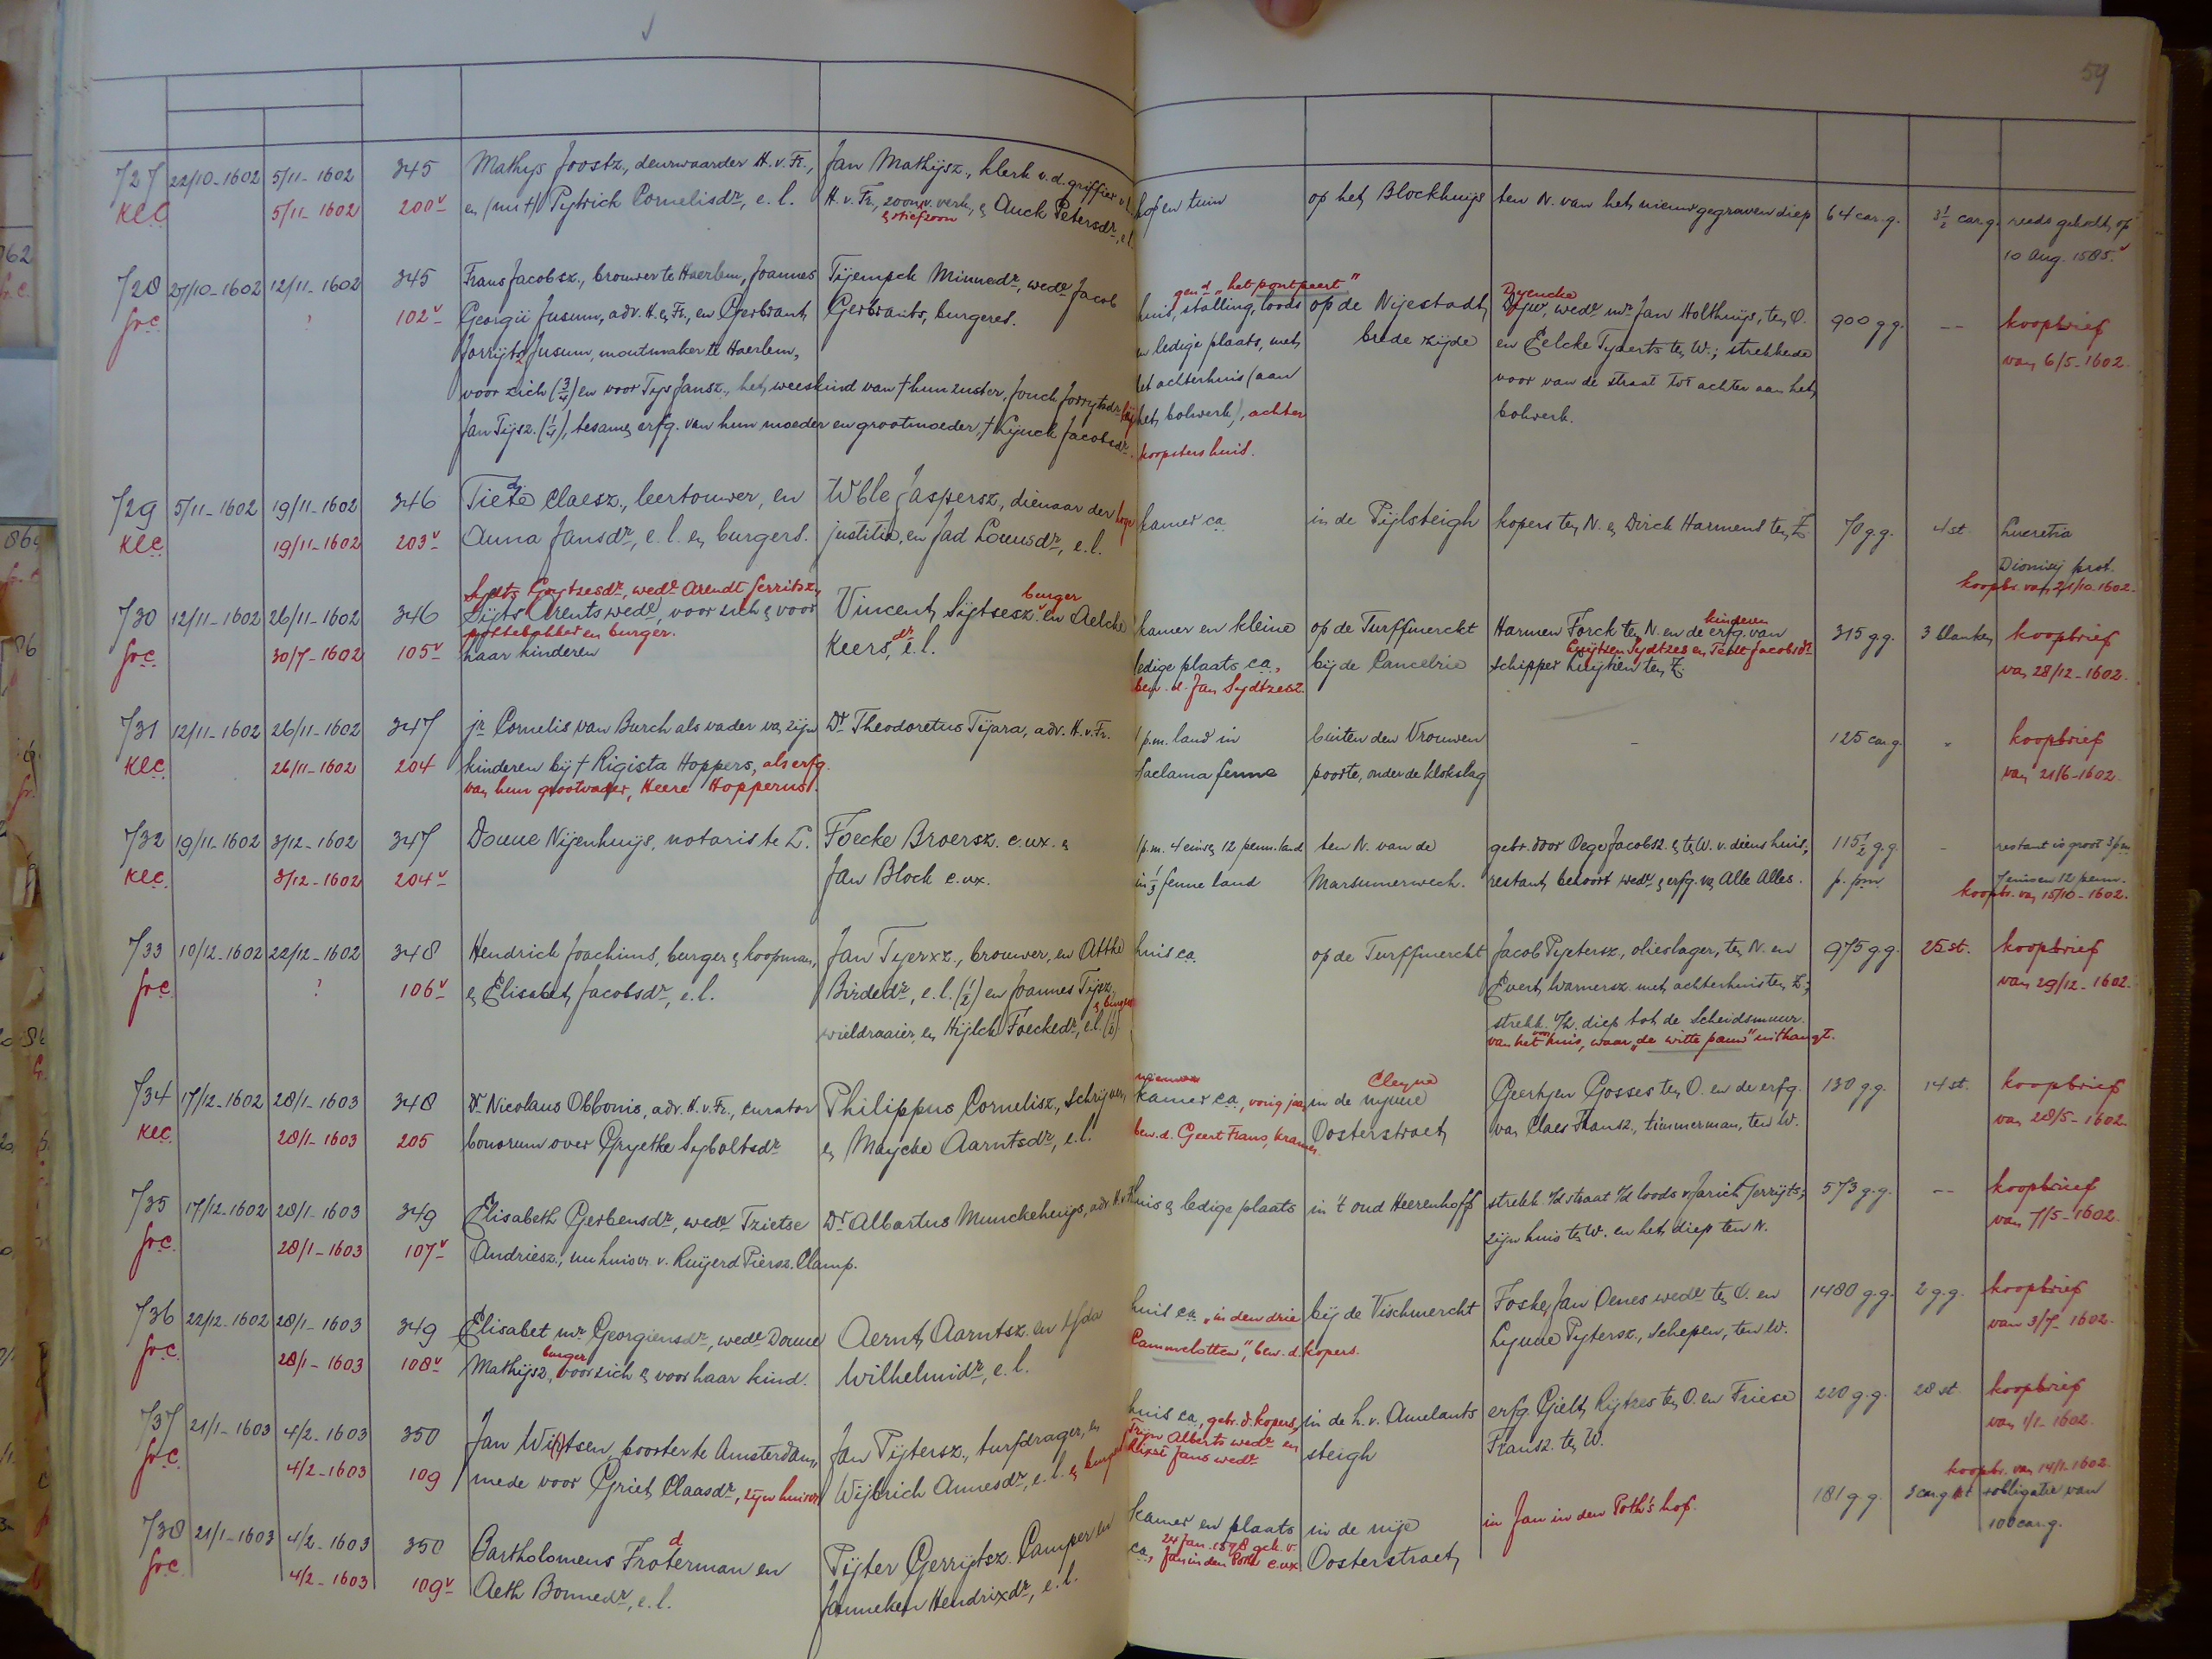 59
727 22/10-1602 5/11-1602 345 Mathys Joostz, deurwaarder H.v.Fr., Jan Mathijsz., klerk v.d. griffier v.h. hof en tuin op het Blockhuys ten N. van het nieuw gegraven diep 64 car.g. 3½ car.g. reeds gekocht op
KLC 5/11-1602 200v en (nu †) Pytrick Cornelisdr, e.l. H.v.Fr., zoon v. verk. en Auck Petersdr, e.l. 10 Aug. 1585.
& stiefzoon
728 27/10-1602 12/11-1602 345 Frans Jacobsz., brouwer te Haerlem, Joannes Tijempck Minnedr, wede Jacob huis, stalling, loods op de Nijestadt, Dyencke wede mr Jan Holthuys, ten O. 900 g.g. -- koopbrief
gend „het pontpeert"
Gr.C. ? 102v Georgii Jusum, adv. H.v.Fr., en Gerbrant Gerbrants, burgeres. en ledige plaats, met brede zijde en Eelcke Tjaerts ten W.; strekkende van 6/5-1602.
Jorrijtsz Jusum, moutmaker te Haerlem, het achterhuis (aan voor van de straat tot achter aan het
voor zich (3/4) en voor Tys Jansz., het weeskind van † hun zuster, Jouck Jorrytsdr bij het bolwerk), achter bolwerk.
Jan Tijsz. (1/4), tesamen erfg. van hun moeder en grootmoeder, † Lijuck Jacobsdr. koopsters huis.
729 5/11-1602 19/11-1602 346 Tiete Claesz., leertouwer, en Wble Jaspersz, dienaar der hoge kamer ca. in de Pijlsteigh kopers ten N. en Dirck Harmens ten Z. 70 g.g. 4 st. Lucretia
KLC 19/11-1602 203v Anna Jansdr, e.l. en burgers. justitie, en Jad Louusdr, e.l. Dionisij prot.
koopbr. van 21/10-1602.
Sydts Goytzesdr, wede Arendt Gerritsz, burger
730 12/11-1602 26/11-1602 346 Sijts Arents wede, voor zich & voor Vincent Sijtsesz. en Aelcke kamer en kleine op de Turffmerckt Harmen Forck ten N. en de erfg. van 315 g.g. 3 blanken koopbrief
pottebakker en burger. kinderen
Gr.C. 30/7-1602 105v haar kinderen Keersdr, e.l. ledige plaats ca., bij de Cancelrie schipper Luytien ten Z. van 28/12-1602.
Luytien Sydtzes en Tedt Jacobsdr
bew. d. Jan Sydtzesz.
731 12/11-1602 26/11-1602 347 jr. Cornelis van Burch als vader van zijn Dr Theodoretus Tijara, adv. H.v.Fr. 1 p.m. land in buiten den Vrouwen - 125 car.g. - koopbrief
KLC 26/11-1602 204 kinderen bij † Rigista Hoppers, als erfg. Saclama fenne poorte, onder de klokslag van 21/6-1602.
van hun grootvader, Heere Hopperus.
732 19/11-1602 3/12-1602 347 Douue Nijenhuijs, notaris te L. Foecke Broersz. c.ux. & 1 p.m. 4 eins en 12 penn. land ten N. van de gebr. door Oege Jacobsz. & ten W. v. diens huis; 115½ g.g. - restant is groot 3 p.m.
KLC 3/12-1602 204v Jan Block c.ux. in 1/3 fenne land Marsumerwech. restant behoort wede & erfg. van Alle Alles. p. p.m. 7 einsen 12 penn.
koopbr. van 15/10-1602.
733 10/12-1602 22/12-1602 348 Hendrick Joachims, burger & koopman, Jan Tjerxz., brouwer, en Atthe huis ca. op de Turffmerckt Jacob Pytersz, olieslager, ten N. en 975 g.g. 25 st. koopbrief
Gr.C. ? 106v & Elisabet Jacobsdr, e.l. Birdedr, e.l. (½) en Joannes Tijsz. Evert Warnersz. met achterhuis ten Z.; van 29/12-1602.
& burger
wieldraaier, en Hijlck Foeckedr, e.l. (½). strekk. v/h. diep tot de Scheidsmuur.
van het huis, waar „de witte pauw" uithangt.
734 17/12-1602 28/1-1603 348 Dr Nicolaus Obbonis, adv. H.v.Fr., curator Philippus Cornelisz., schrijver, kamer ca., vorig jaar in de nijuue Geertyen Gosses ten O. en de erfg. 130 g.g. 14 st. koopbrief
nieuwe Cleyne
KLC 28/1-1603 205 bonorum over Gryetke Syboltsdr & Maycke Aarntsdr, e.l. bew. d. Geert Frans, kramer. Oosterstraet van Claes Fransz., timmerman, ten W. van 28/5-1602.
735 17/12-1602 28/1-1603 349 Elisabeth Gerbensdr, wede Tzietse Dr Albartus Munckehuijs, adv. H.v.Fr. huis & ledige plaats in 't oud Heerenhoff strekk. v/d straat t/d loods v. Jarich Gerrijts; 573 g.g. -- koopbrief
Gr.C. 28/1-1603 107v Andriesz., nu huisvr. v. Ruijerd Piersz. Clamp. zijn huis ten W. en het diep ten N. van 7/5-1602.
736 22/12-1602 28/1-1603 349 Elisabet mr Georgiensdr, wede Douue Aernt Aarntsz. en Yda huis ca. „in den drie bij de Vischmerckt Foske Jan Oenes wede ten O. en 1480 g.g. 2 g.g. koopbrief
Gr.C. 28/1-1603 108v Mathijsz, burger, voor zich & voor haar kind. Wilhelmidr, e.l. Cammelotten", bew. d. kopers. Lyuue Pytersz., schepen, ten W. van 3/7-1602.
737 21/1-1603 4/2-1603 350 Jan Wi(r)tsen, poorter te Amsterdam, Jan Tijtersz., turfdrager, en huis ca., gebr. d. kopers, in de h.v. Amelants erfg. Gielt Rijtzes ten O. en Friese 220 g.g. 28 st. koopbrief
Gr.C. 4/2-1603 109 mede voor Griet Claasdr, zijn huisvr. Wijbrich Annesdr, e.l. & burgers Trijn Alberts wede en steigh Fransz. ten W. van 1/1-1602.
Rixst Jans wede
koopbr. van 14/1-1602.
738 21/1-1603 4/2-1603 350 Bartholomeus Froterman en Pijter Gerrijtsz. Camper en kamer en plaats in de nije in Jan in den Poth's hof. 181 g.g. 3 car.g. 1 st +obligatie van
d 24 Jan. 1598 gek. v.
Gr.C. 4/2-1603 109v Aeth Bonnedr, e.l. Janneken Hendrixdr, e.l. ca., Jan in den Poth c.ux. Oosterstraet 100 car.g.